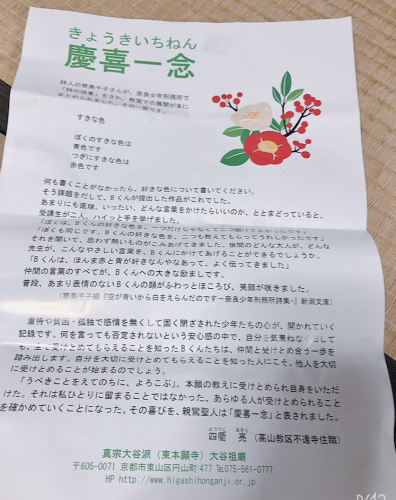 きょうきいちねん
慶喜一念
詩人の寮美千子さんが、奈良少年刑務所で
「詩の授業」をされ、教室での展開が本に
まとめられました。その一節です。
すきな色
ぼくのすきな色は
青色です
つぎにすきな色は
赤色です
何も書くことがなかったら、好きな色について書いてください。
そう課題をだして、Bくんが提出した作品がこれでした。
あまりにも直球。いったい、どんな言葉をかけたらいいのか、ととまどっていると、
受講生が二人、ハイッと手を挙げました。
「ぼくは、Bくんの好きな色を、一つだけじゃなくて二つ聞けてよかったです」
「ぼくも同じです。Bくんの好きな色を、二つも教えてもらってうれしかったです」
それを聞いて、思わず熱いものがこみあげてきました。世間のどんな大人が、どんな
先生が、こんなやさしい言葉を、Bくんにかけてあげることができるでしょうか。
「Bくんは、ほんま赤と青が好きなんやなあって、よく伝ってきました」
仲間の言葉のすべてが、Bくんへの大きな励ましです。
普段、あまり表情のないBくんの顔がふわっとほころび、笑顔が咲きました。
(寮美千子編『空が青いから白をえらんだのです―奈良少年刑務所詩集―』新潮文庫)
虐待や貧困・孤独で感情を無くして固く閉ざされた少年たちの心が、開かれていく
記録です。何を言っても否定されないという安心感の中で、自分を気兼ねなく出して
も、全て受けとめてもらえることを知ったBくんたちは、仲間と受けとめ合う一歩を
踏み出します。自分を大切に受けとめてもらえることを知った人にこそ、他人を大切
に受けとめることが始まるのでしょう。
「うべきことをえてのちに、よろこぶ」。本願の教えに受けとめられ自身をいただ
けた。それは私ひとりに留まることではなかった、あらゆる人が受けとめられること
を確かめていくことになった。その喜びを、親鸞聖人は「慶喜一念」と表されました。
四衢 亮(高山教区不遠寺住職)
真宗大谷派(東本願寺)大谷祖廟
〒605-0071 京都市東山区円山町 477 ℡075-561-0777
HP http://www.higashihonganji.or.jp